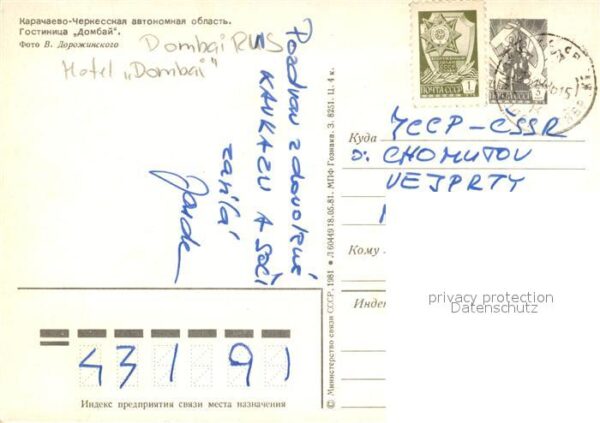 Карачаево-Черкесская автономная область.
Гостиница „Домбай".
Фото В. Дорожинского
Dombai RUS
Hotel „Dombai"
Pozdrav z dovolené
KAVKAZU A Soči
zasílá
ПОЧТА СССР 1
© Министерство связи СССР, 1981 • Л 60449 18.05.81. МПФ Гознака. З. 8251. Ц. 4 к.
Куда ЧССР - ČSSR
o: CHOMUTOV
VEJPRTY
Кому
Индек
privacy protection
Datenschutz
431 91
Индекс предприятия связи места назначения